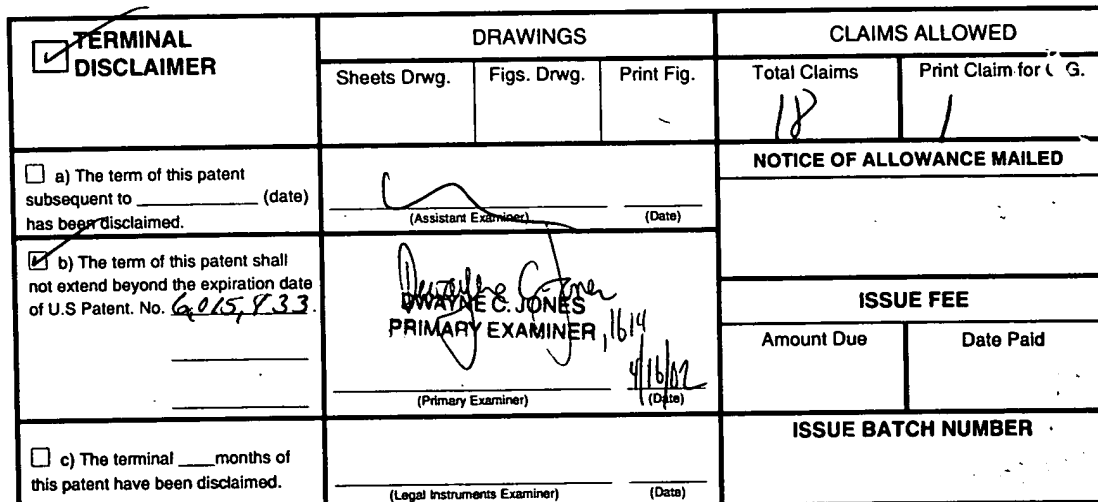 TERMINAL
DISCLAIMER
DRAWINGS
CLAIMS ALLOWED
Sheets Drwg.
Figs. Drwg.
Print Fig.
Total Claims
Print Claim for G.
18
1
a) The term of this patent
subsequent to ____________ (date)
has been disclaimed.
(Assistant Examiner)
(Date)
NOTICE OF ALLOWANCE MAILED
b) The term of this patent shall
not extend beyond the expiration date
of U.S Patent. No. 6,015,433.
Dwayne C. Jones
DWAYNE C. JONES
PRIMARY EXAMINER, 1614
4/16/02
(Primary Examiner)
(Date)
ISSUE FEE
Amount Due
Date Paid
c) The terminal ____months of
this patent have been disclaimed.
(Legal Instruments Examiner)
(Date)
ISSUE BATCH NUMBER